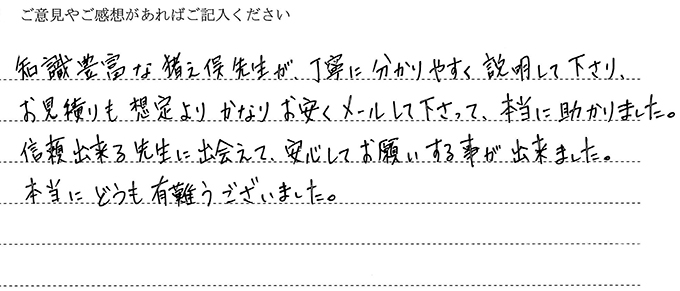 ご意見やご感想があればご記入ください
知識豊富な猪ノ俣先生が、丁寧に分かりやすく説明して下さり、
お見積りも想定よりかなりお安くメールして下さって、本当に助かりました。
信頼出来る先生に出会えて、安心してお願いする事が出来ました。
本当にどうも有難うございました。